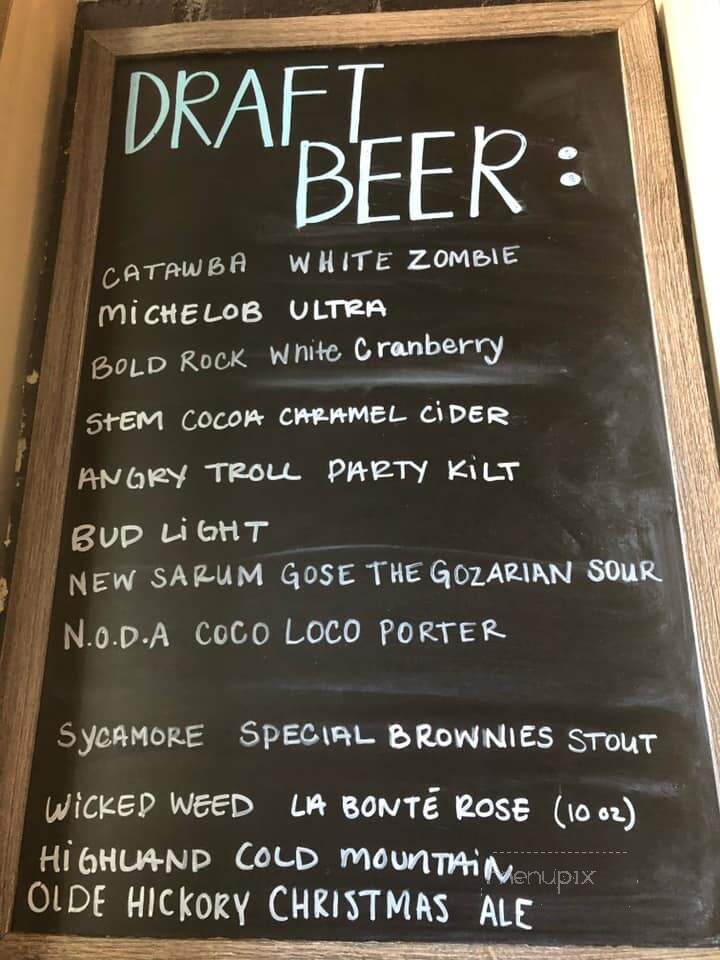 DRAFT
BEER:
CATAWBA WHITE ZOMBIE
MiCHELOB ULTRA
BOLD ROCK White Cranberry
StEM COCOA CARAMEL CiDER
ANGRY TROLL PARTY KiLT
BUD LiGHT
NEW SARUM GOSE THE GOZARIAN SOUR
N.O.D.A COCO LOCO PORTER
SyCAMORE SPECIAL BROWNIES STOUT
WiCKED WEED LA BONTĒ ROSE (10 oz)
HiGHLAND COLD MOUNTAiN
menupix
OLDE HICKORY CHRISTMAS ALE